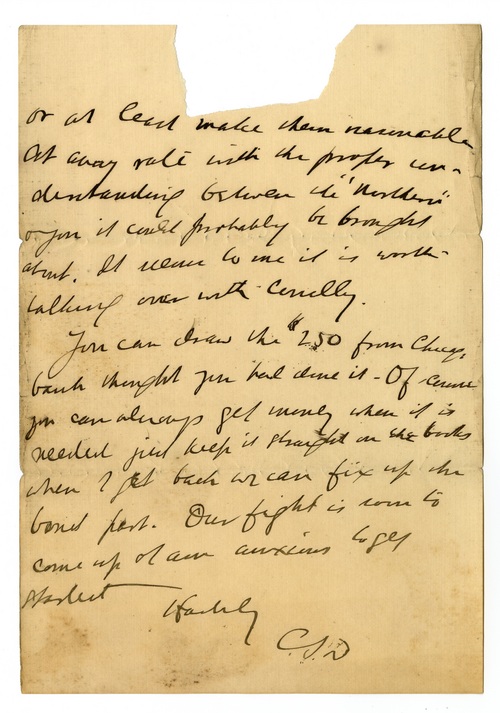 or at least make them reasonable
At any rate with the proper un-
derstanding between the "Northern"
& you it could probably be brought
about. It seems to me it is worth
talking over with Conelly.
You can draw the $250 from Chicago
bank thought you had done it - Of course
you can always get money when it is
needed just keep it straight on the books
when I get back we can fix up the
bond part. Our fight is soon to
come up & I am anxious to get
started
Hastily
C.S.D